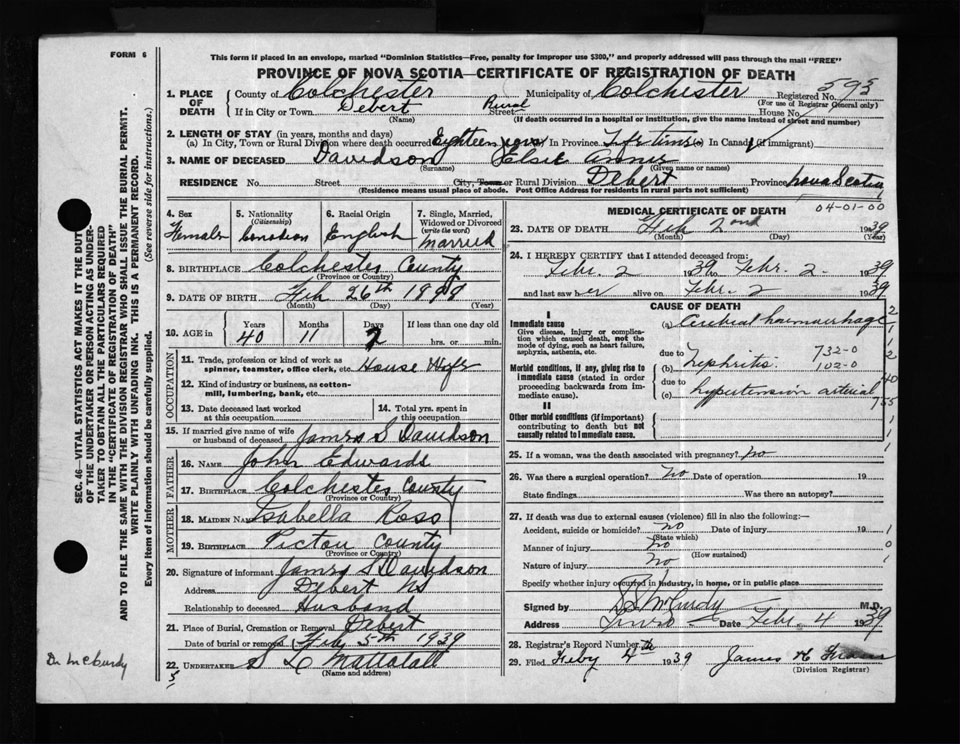 FORM 6
This form if placed in an envelope, marked "Dominion Statistics—Free, penalty for improper use $300," and properly addressed will pass through the mail "FREE"
PROVINCE OF NOVA SCOTIA—CERTIFICATE OF REGISTRATION OF DEATH
593
1. PLACE OF DEATH
County of Colchester Municipality of Colchester Registered No.
(For use of Registrar General only)
If in City or Town Debert Street Rural House No.
(Name) (If death occurred in a hospital or institution, give the name instead of street and number)
2. LENGTH OF STAY (in years, months and days)
(a) In City, Town or Rural Division where death occurred Eighteen years In Province Life time In Canada (if immigrant)
3. NAME OF DECEASED Davidson Elsie Annie
(Surname) (Given name or names)
RESIDENCE No. Street City, Town or Rural Division Debert Province Nova Scotia
(Residence means usual place of abode. Post Office Address for residents in rural parts not sufficient)
04-01-00
4. Sex Female
5. Nationality (Citizenship) Canadian
6. Racial Origin English
7. Single, Married, Widowed or Divorced (write the word) Married
8. BIRTHPLACE Colchester County
(Province or Country)
9. DATE OF BIRTH Feb 26th 1898
(Month) (Day) (Year)
10. AGE in Years 40 Months 11 Days If less than one day old hrs. or min.
OCCUPATION
11. Trade, profession or kind of work as spinner, teamster, office clerk, etc. House Wife
12. Kind of industry or business, as cotton-mill, lumbering, bank, etc.
13. Date deceased last worked at this occupation
14. Total yrs. spent in this occupation
15. If married give name of wife or husband of deceased James S Davidson
FATHER
16. NAME John Edwards
17. BIRTHPLACE Colchester County
(Province or Country)
MOTHER
18. MAIDEN NAME Isabella Ross
19. BIRTHPLACE Pictou County
(Province or Country)
20. Signature of informant James S Davidson
Address Debert NS
Relationship to deceased Husband
21. Place of Burial, Cremation or Removal Debert
Date of burial or removal Feb 5th 1939
22. UNDERTAKER S L Mattatall
(Name and address)
MEDICAL CERTIFICATE OF DEATH
23. DATE OF DEATH Feb 2nd 1939
(Month) (Day) (Year)
24. I HEREBY CERTIFY that I attended deceased from:
Febr. 2 1939 to Febr. 2 1939
and last saw her alive on Febr. 2 1939
CAUSE OF DEATH
I
Immediate cause
Give disease, injury or complication which caused death, not the mode of dying, such as heart failure, asphyxia, asthenia, etc.
(a) Cerebral haemorrhage
due to
Morbid conditions, if any, giving rise to immediate cause (stated in order proceeding backwards from immediate cause).
(b) Nephritis 732-0
102-0
due to
(c) hypertension arterial
II
Other morbid conditions (if important) contributing to death but not causally related to immediate cause.
25. If a woman, was the death associated with pregnancy? no
26. Was there a surgical operation? no Date of operation 19
State findings Was there an autopsy?
27. If death was due to external causes (violence) fill in also the following:—
Accident, suicide or homicide? no Date of injury 19
(State which)
Manner of injury no
(How sustained)
Nature of injury no
Specify whether injury occurred in industry, in home, or in public place
Signed by McCurdy M.D.
Address Truro Date Febr. 4 1939
28. Registrar's Record Number
29. Filed Feby 4th 1939 James H
(Division Registrar)
SEC. 46—VITAL STATISTICS ACT MAKES IT THE DUTY OF THE UNDERTAKER OR PERSON ACTING AS UNDERTAKER TO OBTAIN ALL THE PARTICULARS REQUIRED IN THE "CERTIFICATE OF REGISTRATION OF DEATH" AND TO FILE THE SAME WITH THE DIVISION REGISTRAR WHO SHALL ISSUE THE BURIAL PERMIT.
WRITE PLAINLY WITH UNFADING INK. THIS IS A PERMANENT RECORD.
Every item of information should be carefully supplied. (See reverse side for instructions.)
Dr McCurdy